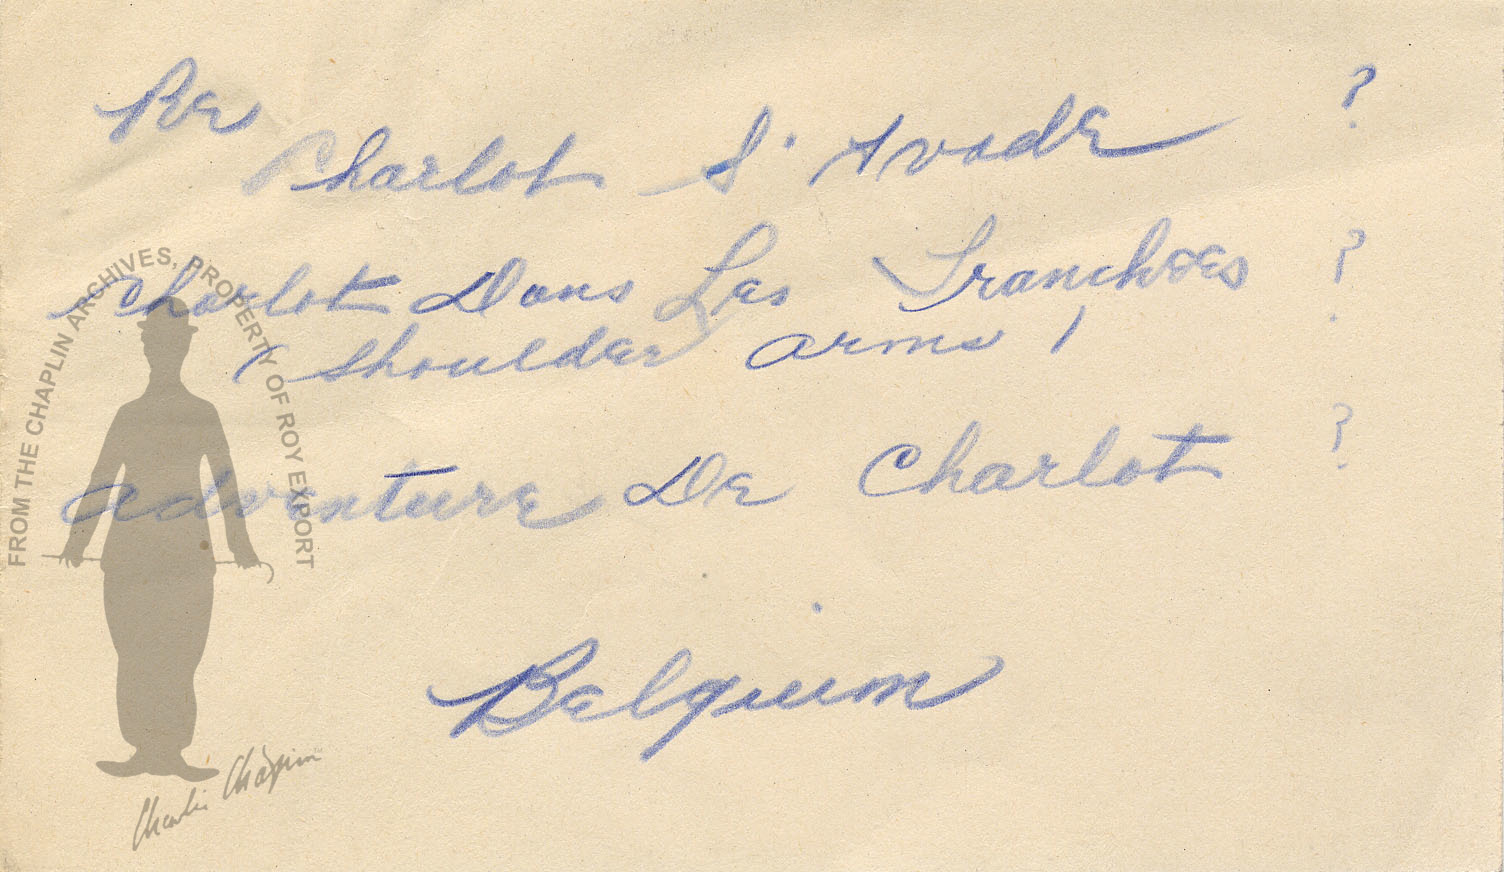 Re
Charlot S'Avade ?
Charlot Dans Les Tranchees ?
( Shoulder arms )
Adventure De Charlot ?
Belgium
FROM THE CHAPLIN ARCHIVES, PROPERTY OF ROY EXPORT
Charlie Chaplin